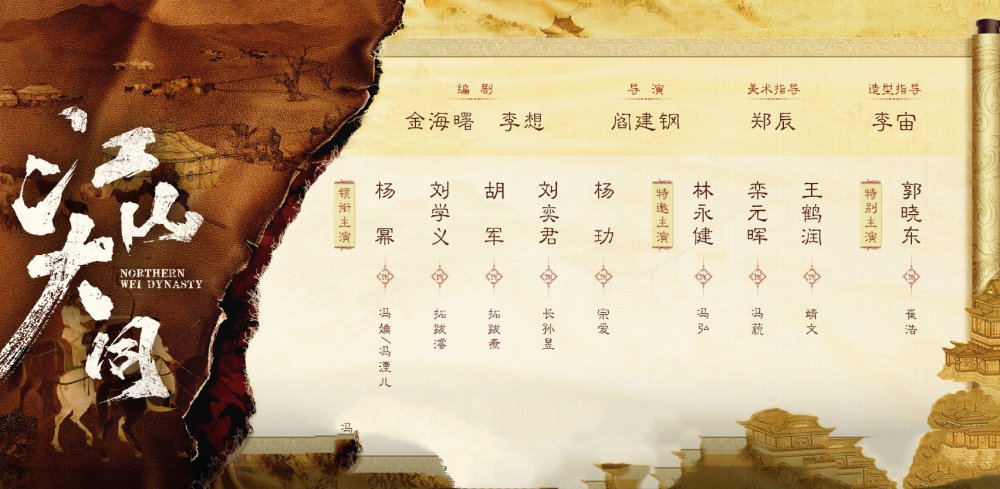 江山大同
NORTHERN
WEI DYNASTY
编剧
金海曙 李想
导演
阎建钢
美术指导
郑辰
造型指导
李宙
领衔主演
杨幂
饰
冯嬿/冯湮儿
刘学义
饰
拓跋濬
胡军
饰
拓跋焘
刘奕君
饰
长孙昱
杨玏
饰
宗爱
特邀主演
林永健
饰
冯弘
栾元晖
饰
冯藐
王鹤润
饰
靖文
特别主演
郭晓东
饰
崔浩
冯